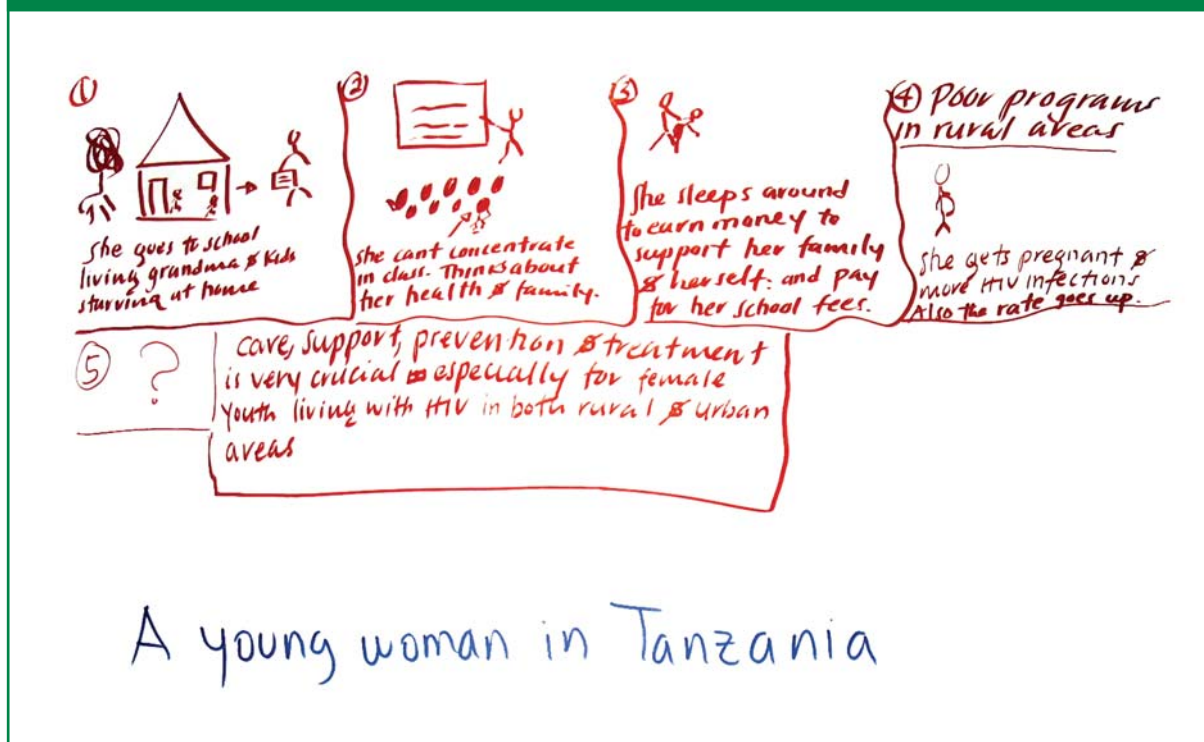 ①
She goes to school
living grandma & kids
starving at home
②
she cant concentrate
in class. Thinks about
her health & family.
③
She sleeps around
to earn money to
support her family
& herself: and pay
for her school fees.
④ Poor programs
in rural areas
she gets pregnant &
more HIV infections
Also the rate goes up.
⑤ ?
care, support, prevention & treatment
is very crucial especially for female
youth living with HIV in both rural & urban
areas
A young woman in Tanzania